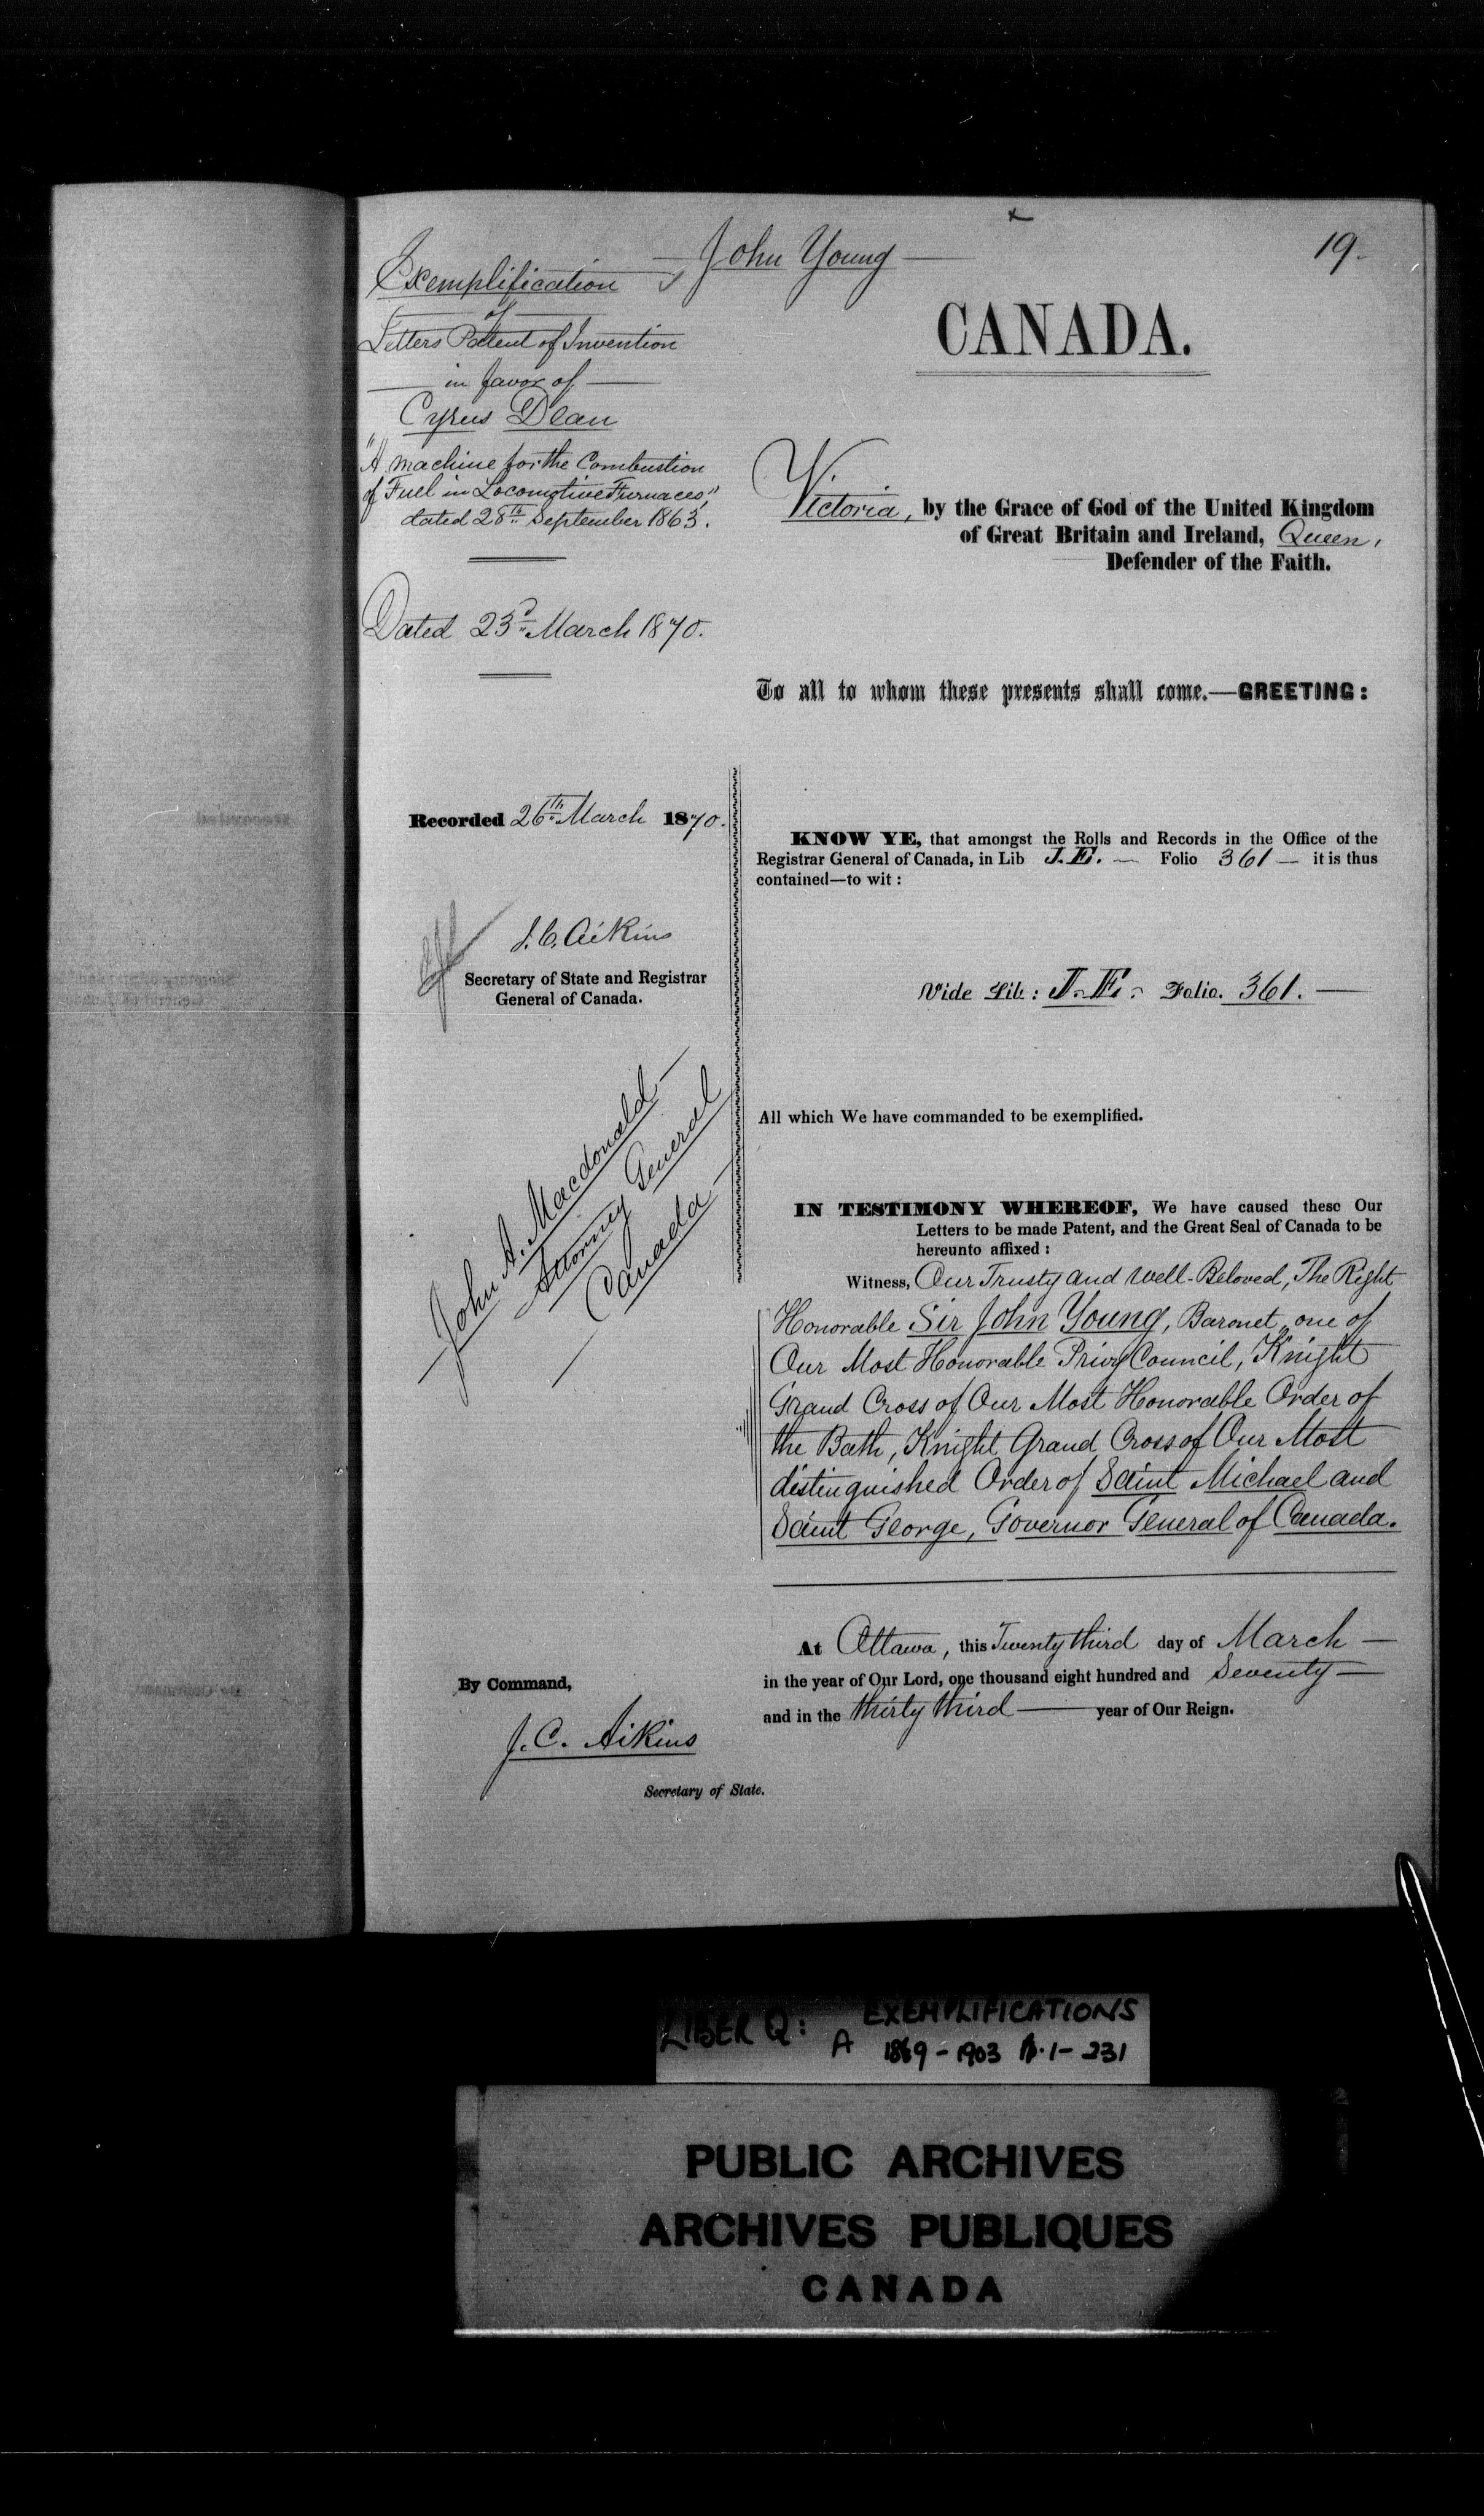 19.
John Young
Exemplification
of
Letters Patent of Invention
in favor of
Cyrus Dean
"A machine for the Combustion
of Fuel in Locomotive Furnaces,"
dated 28th September 1863.
Dated 23d March 1870.
Recorded 26th March 1870.
J. C. Aikins
Secretary of State and Registrar
General of Canada.
John A. Macdonald
Attorney General
Canada
By Command,
J. C. Aikins
Secretary of State.
CANADA.
Victoria, by the Grace of God of the United Kingdom
of Great Britain and Ireland, Queen,
Defender of the Faith.
To all to whom these presents shall come.—GREETING:
KNOW YE, that amongst the Rolls and Records in the Office of the
Registrar General of Canada, in Lib J. E. — Folio 361 — it is thus
contained—to wit:
Vide Lib: J. E. Folio. 361. —
All which We have commanded to be exemplified.
IN TESTIMONY WHEREOF, We have caused these Our
Letters to be made Patent, and the Great Seal of Canada to be
hereunto affixed:
Witness, Our Trusty and Well-Beloved, The Right
Honorable Sir John Young, Baronet, one of
Our Most Honorable Privy Council, Knight
Grand Cross of Our Most Honorable Order of
the Bath, Knight Grand Cross of Our Most
distinguished Order of Saint Michael and
Saint George, Governor General of Canada.
At Ottawa, this Twenty third day of March —
in the year of Our Lord, one thousand eight hundred and Seventy —
and in the thirty third — year of Our Reign.
LIBER Q: EXEMPLIFICATIONS
A 1869-1903 p. 1-231
PUBLIC ARCHIVES
ARCHIVES PUBLIQUES
CANADA